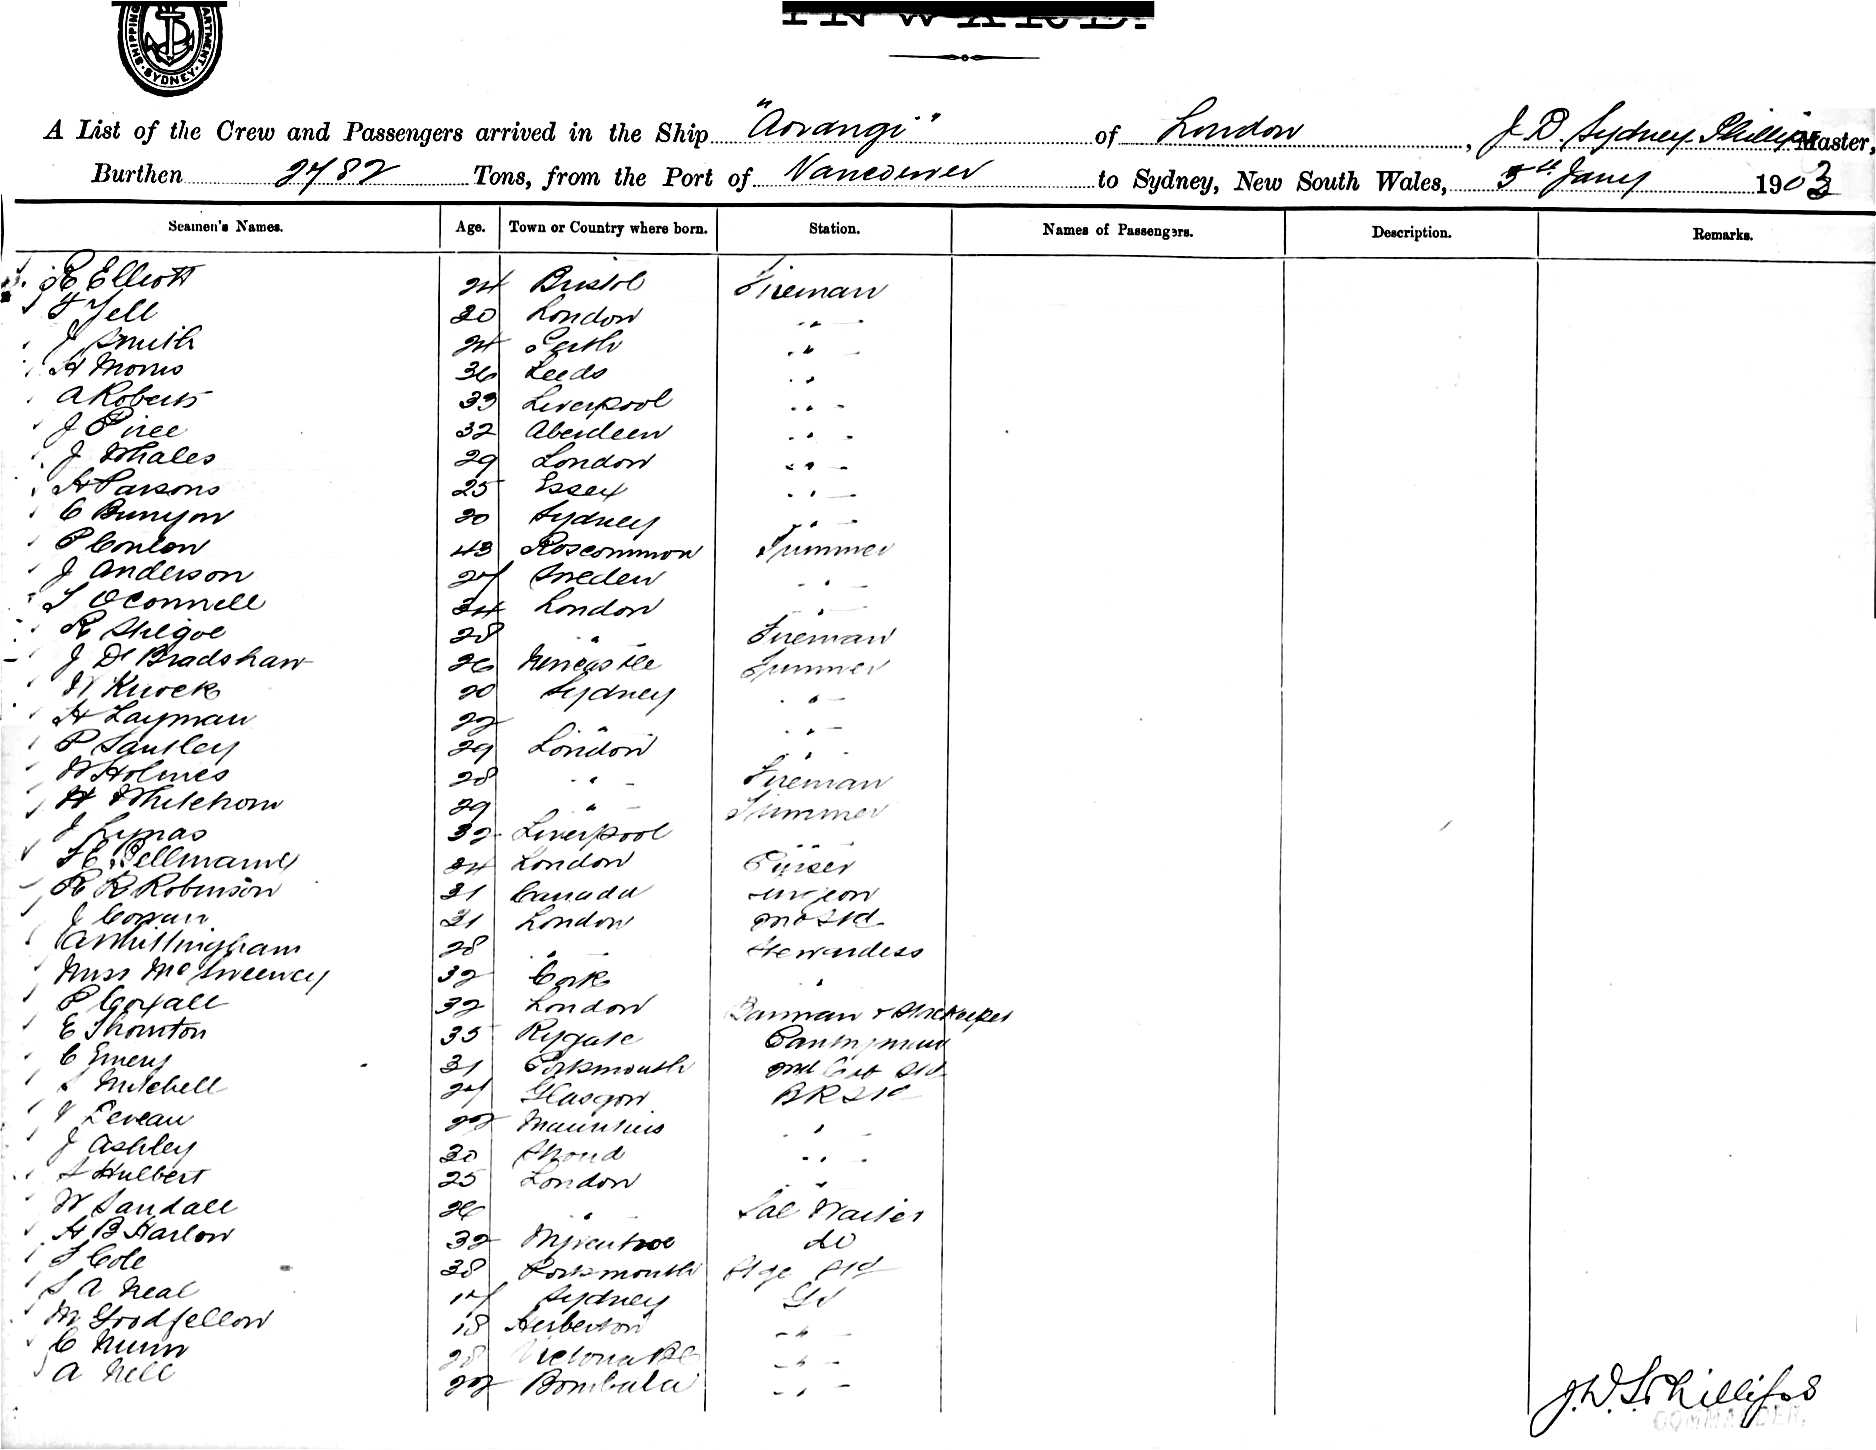 SHIPPING DEPARTMENT SYDNEY
INWARD.
A List of the Crew and Passengers arrived in the Ship "Aorangi" of London, J. D. Sydney Phillips Master,
Burthen 2782 Tons, from the Port of Vancouver to Sydney, New South Wales, 5th Jany 1903
Seamen's Names. Age. Town or Country where born. Station. Names of Passengers. Description. Remarks.
R Elliott 24 Bristol Fireman
Yell 20 London " -
J Smith 24 Perth " -
H Morris 36 Leeds "
A Roberts 33 Liverpool " -
J Piree 32 Aberdeen " -
J Whales 29 London " -
H Parsons 25 Essex " -
C Bunyon 20 Sydney " -
P Conlon 43 Roscommon Trimmer
J Anderson 27 Sweden " -
T OConnell 34 London " -
R 28 " Fireman
J D Bradshaw 26 Newcastle Trimmer
W Knock 20 Sydney " -
H Layman 22 " " -
P Sansley 29 London " -
W Holmes 28 " - Fireman
H Whitehorn 29 " - Trimmer
J Lynas 32 Liverpool "
F E Bellmaine 24 London Purser
R R Robinson 31 Canada Surgeon
J 31 London 2nd Std
A Whittingham 28 " Stewardess
Miss McSweeney 32 Cork "
P Coxall 32 London Barman & Storekeeper
E Thornton 35 Rygate Pantryman
C Emery 31 Portsmouth 2nd Std
S Mitchell 27 Glasgow B R Std
Leveau 22 Mauritius " -
J Ashley 30 Stroud " -
Hulbert 25 London "
W Sandall 26 " Sal Waiter
H B Harlow 32 do
T Cole 38 Portsmouth Stge Std
S A Neal 17 Sydney
M Goodfellow 18 Herberton " -
C Nunn 28 Victoria BC " -
A Nell 22 Bombala " -
J.D.S. Phillips
COMMANDER.